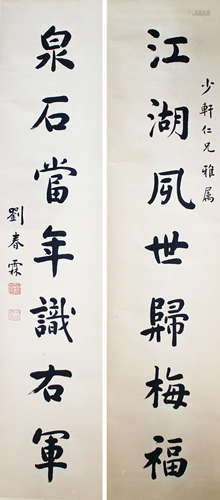 江湖風世歸梅福
少軒仁兄雅属
泉石當年識右軍
劉春霖